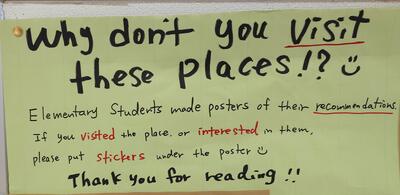 Why don't you visit
these places!? ☺
Elementary Students made posters of their recommendations.
If you visited the place, or interested in them,
please put stickers under the poster ☺
Thank you for reading !!